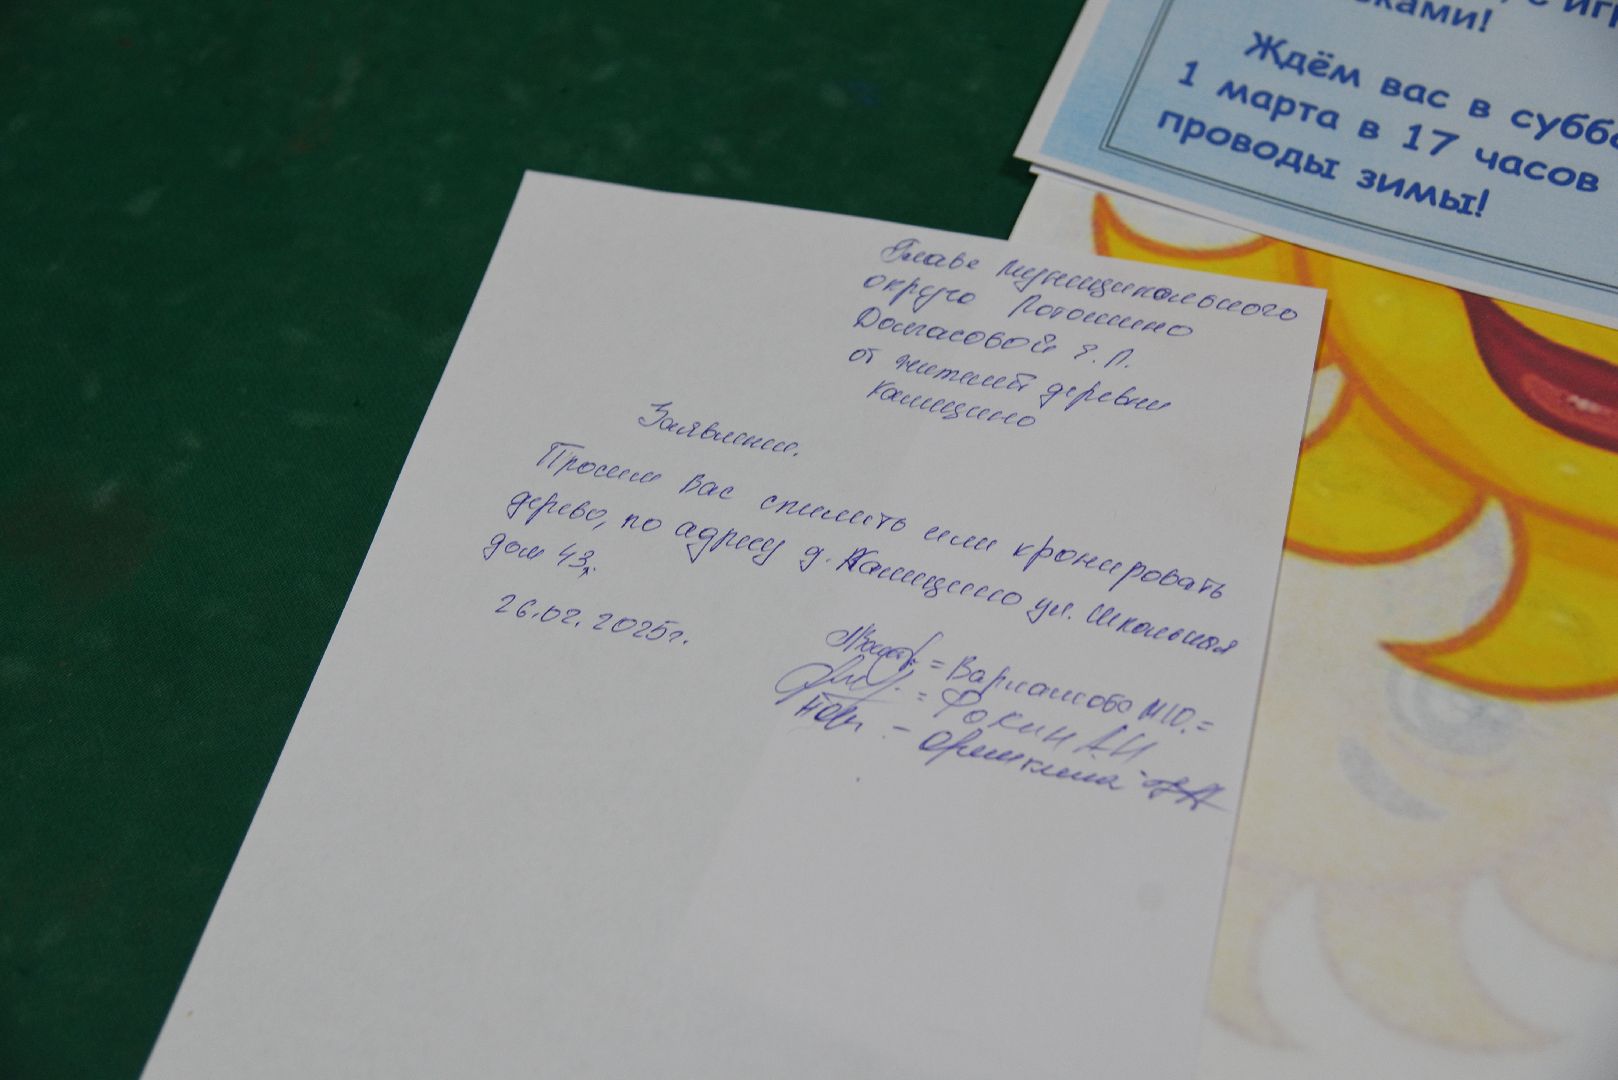 сками!
Ждём вас в суббо
1 марта в 17 часов
проводы зимы!
Главе муниципального
округа Лотошино
Долгасовой Е. Л.
от жителей деревни
Калицино
Заявление.
Просим Вас спилить или кронировать
дерево, по адресу д. Калицино ул. Школьная
дом 43.
26.02.2025г.
= Варламова М.Ю. =
= Фокин А Н